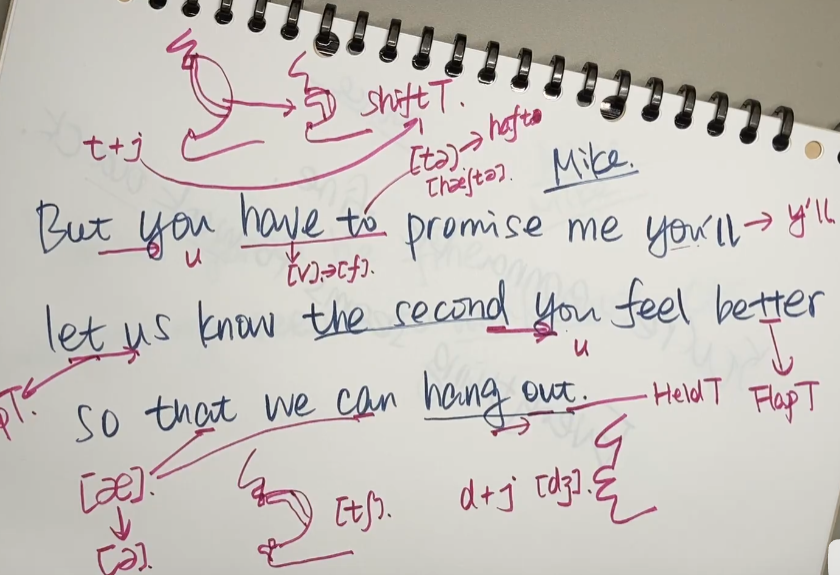 shift T.
t+j
[tə) → hafta
[hæftə].
Mike.
But you have to promise me you'll → y'll
u
[v]→[f].
let us know the second you feel better
u
pT.
so that we can hang out. HeldT FlapT
[æ].
[tʃ].
d+j [dʒ].
[ə].